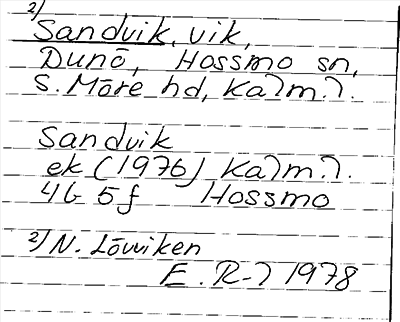 2)
Sandvik, vik,
Dunö, Hossmo sn,
S. Möre hd, Kalm. l.
Sandvik
ek (1976) Kalm. l.
4G 5f Hossmo
2) N. Löwiken
E. R-l 1978